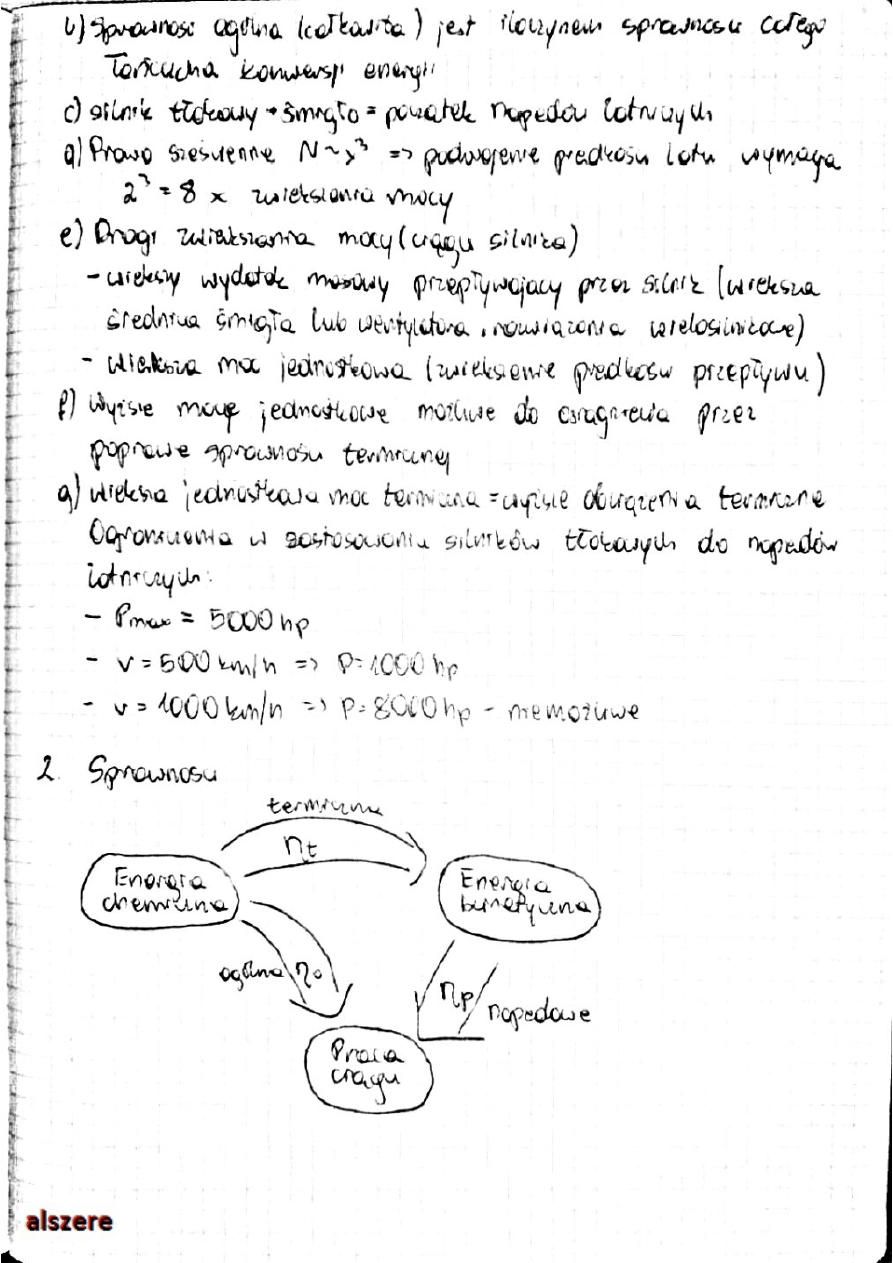 b) Sprawność ogólna (całkowita) jest iloczynem sprawności całego
łańcucha konwersji energii
c) silnik tłokowy + śmigło = początek napędów lotniczych
d) Prawo sześcienne N ~ v³ => podwojenie prędkości lotu wymaga
2³ = 8 x zwiększania mocy
e) Drogi zwiększania mocy (ciągu silnika)
- większy wydatek masowy przepływający przez silnik (większa
średnica śmigła lub wentylatora, rozwiązania wielosilnikowe)
- większa moc jednostkowa (zwiększenie prędkości przepływu)
f) wyższe moce jednostkowe możliwe do osiągnięcia przez
poprawę sprawności termicznej
g) większa jednostkowa moc termiczna = wyższe obciążenia termiczne
Ograniczenia w zastosowaniu silników tłokowych do napędów
lotniczych:
- Pmax = 5000 hp
- v = 500 km/h => P = 1000 hp
- v = 1000 km/h => P = 8000 hp - niemożliwe
2. Sprawności
termiczna
ηt
Energia
chemiczna
Energia
kinetyczna
ogólna ηo
ηp
napędowe
Praca
ciągu
alszere